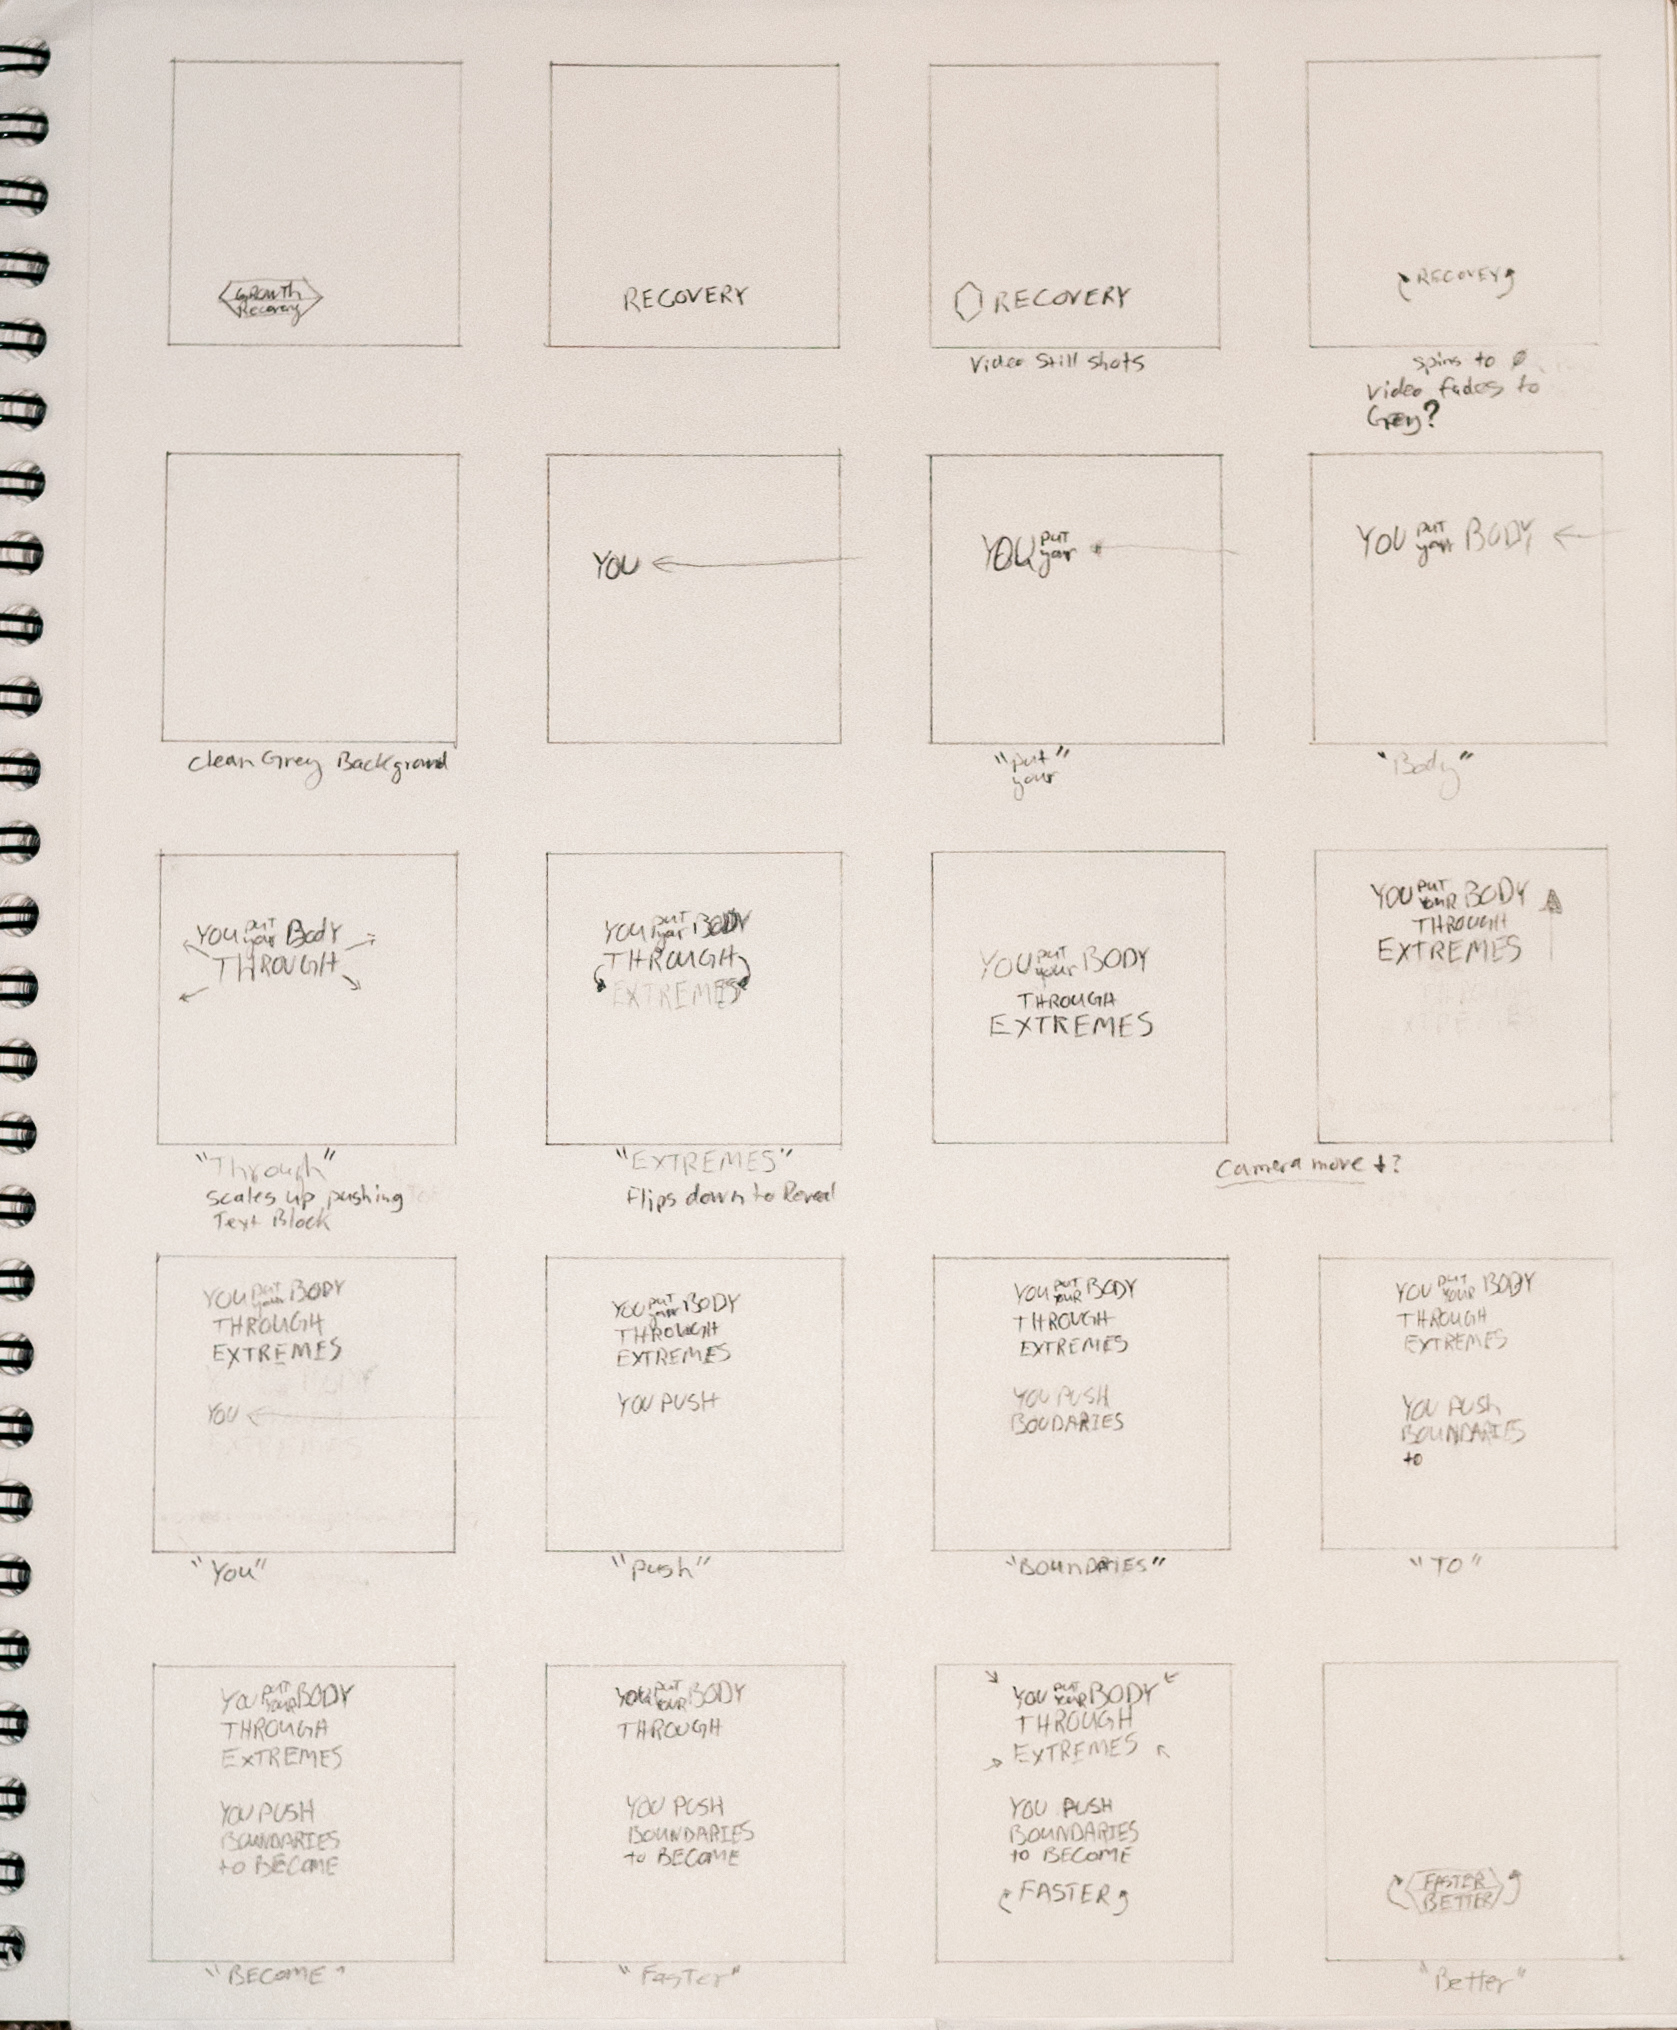 GROWTH
Recovery
RECOVERY
RECOVERY
Video Still Shots
RECOVERY
spins to
Video fades to
Grey?
Clean Grey Background
YOU
YOU PUT your
"put"
your
YOU PUT your BODY
"Body"
YOU PUT your Body
THROUGH
"Through"
scales up pushing
Text Block
YOU PUT your BODY
THROUGH
EXTREMES
"EXTREMES"
Flips down to Reveal
YOU PUT your BODY
THROUGH
EXTREMES
YOU PUT YOUR BODY
THROUGH
EXTREMES
Camera move ?
YOU PUT your BODY
THROUGH
EXTREMES
YOU
"You"
YOU PUT your BODY
THROUGH
EXTREMES
YOU PUSH
"push"
YOU PUT YOUR BODY
THROUGH
EXTREMES
YOU PUSH
BOUDARIES
"BOUNDARIES"
YOU PUT YOUR BODY
THROUGH
EXTREMES
YOU PUSH
BOUNDARIES
to
"TO"
YOU PUT YOUR BODY
THROUGH
EXTREMES
YOU PUSH
BOUNDARIES
to BECOME
"BECOME"
YOU PUT YOUR BODY
THROUGH
YOU PUSH
BOUNDARIES
to BECOME
"Faster"
YOU PUT YOUR BODY
THROUGH
EXTREMES
YOU PUSH
BOUNDARIES
to BECOME
FASTER
FASTER
BETTER
"Better"